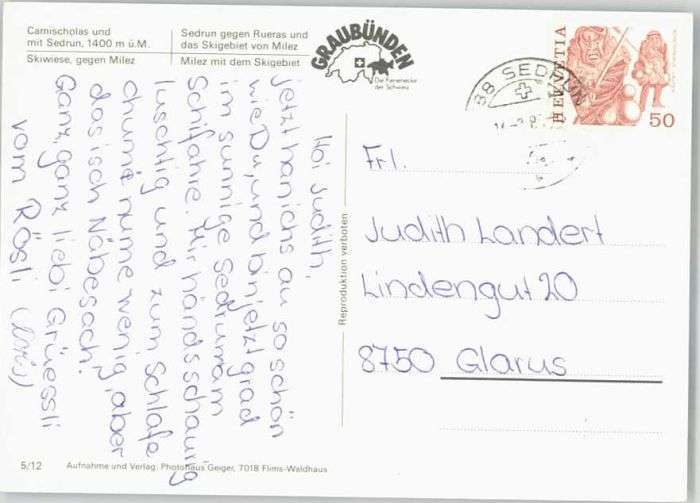 Camischolas und
mit Sedrun, 1400 m ü.M.
Skiwiese, gegen Milez
Sedrun gegen Rueras und
das Skigebiet von Milez
Milez mit dem Skigebiet
GRAUBÜNDEN
Die Ferienecke
der Schweiz
88 SEDRUN
HELVETIA
50
Hoi Judith,
jetzt han ichs au so schön
wie Du, und bin jetzt grad
im sunnige Sedrun am
Schifahre. Mir händs schaurig
luschtig und zum Schlafe
chumi nume wenig, aber
das isch Näbesach.
Ganz, ganz liebi Grüessli
vom Rösli
Reproduktion verboten
Frl.
Judith Landert
Lindengut 20
8750 Glarus
5/12
Aufnahme und Verlag: Photohaus Geiger, 7018 Flims-Waldhaus